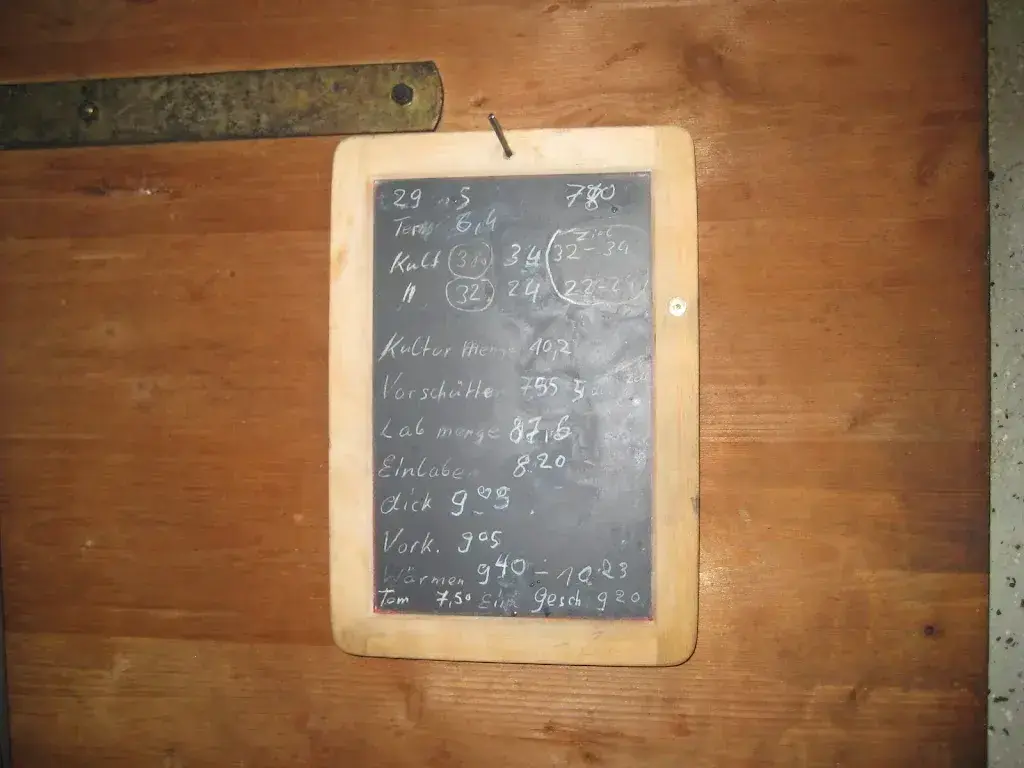 29 . 5 780
Tem 6,4
Ziel
Kult 34 32 - 34
" 32 24
Kultur menge 10,2
Vorschütten 755
Lab menge 87,6
Einlaben 8.20
dick 9 03
Vork. 9 05
Wärmen 9 40 - 10.23
Tom 7,50 gesch 9 20